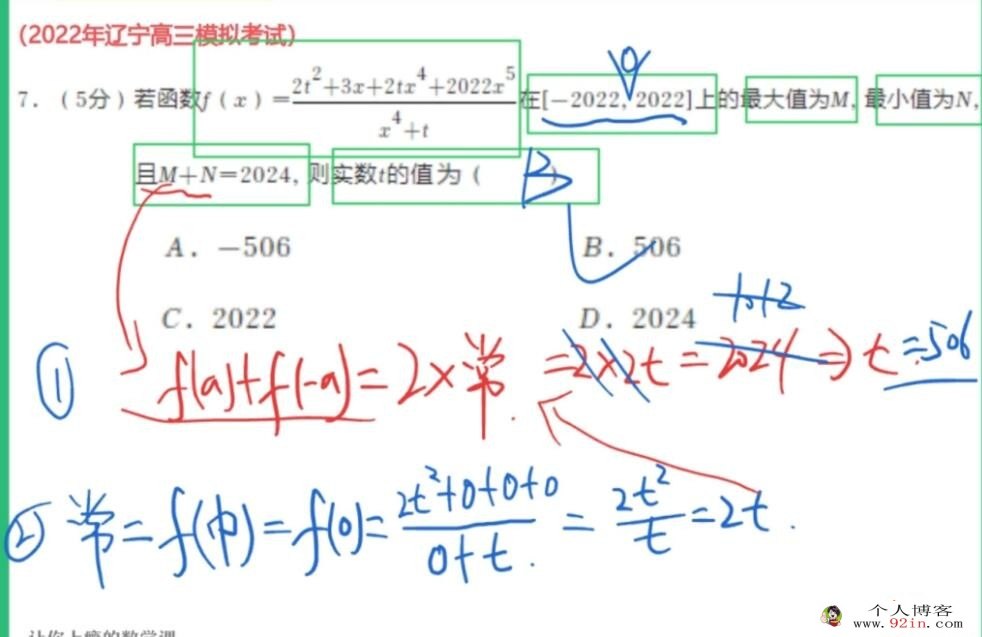 (2022年辽宁高三模拟考试)
7.(5分)若函数f(x)=\frac{2t^2+3x+2tx^4+2022x^5}{x^4+t}在[-2022, 2022]上的最大值为M, 最小值为N,
0
且M+N=2024, 则实数t的值为( B )
A. -506
B. 506
C. 2022
D. 2024
1012
① f(a)+f(-a)=2×常 =2×2t=2024⇒t=506
② 常=f(中)=f(0)=\frac{2t^2+0+0+0}{0+t}=\frac{2t^2}{t}=2t.
个人博客
www.92in.com